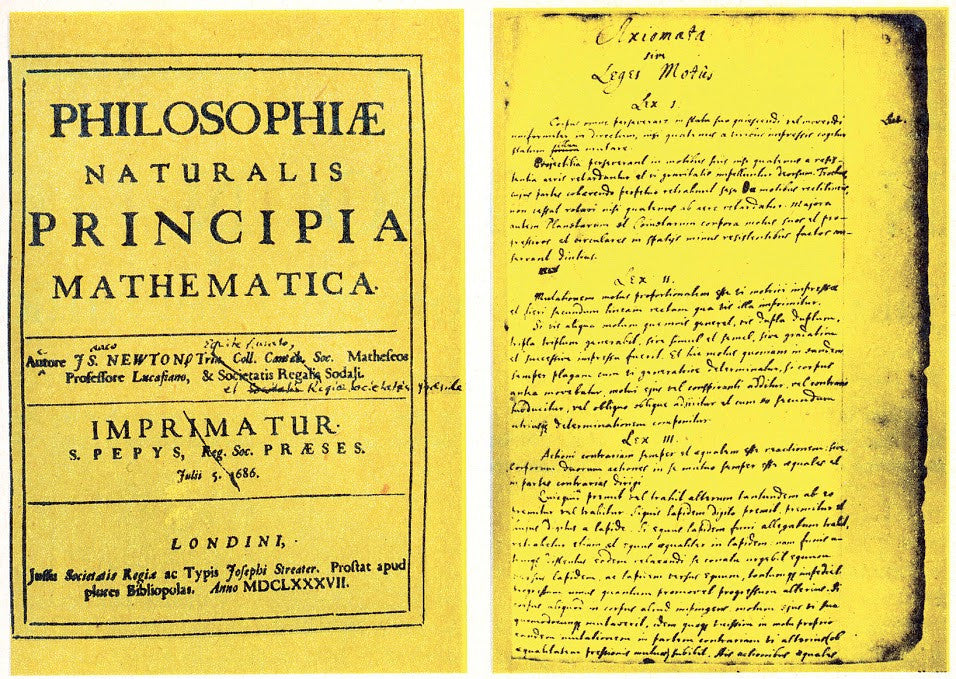 PHILOSOPHIÆ
NATURALIS
PRINCIPIA
MATHEMATICA.
Autore JS. NEWTON, Trin. Coll. Cantab. Soc. Matheseos
Professore Lucasiano, & Societatis Regalis Sodali.
et Societatis Regiæ Societatis præside
IMPRIMATUR.
S. PEPYS, Reg. Soc. PRÆSES.
Julii 5. 1686.
LONDINI,
Jussu Societatis Regiæ ac Typis Josephi Streater. Prostat apud
plures Bibliopolas. Anno MDCLXXXVII.
Axiomata
sive
Leges Motûs
Lex I.
Corpus omne perseverare in statu suo quiescendi vel movendi
uniformiter in directum, nisi quatenus a viribus impressis cogitur
statum mutare.
Projectilia perseverant in motibus suis nisi quatenus a resis-
tentia aeris retardantur et vi gravitatis impelluntur deorsum. Trochus,
cujus partes cohærendo perpetuo retrahunt sese a motibus rectilineis,
non cessat rotari nisi quatenus ab aere retardatur. Majora
autem Planetarum et Cometarum corpora motus suos et pro-
gressivos et circulares in spatijs minus resistentibus factos con-
servant diutius.
Lex II.
Mutationem motus proportionalem esse vi motrici impressæ
et fieri secundum lineam rectam qua vis illa imprimitur.
Si vis aliqua motum quemvis generet, vis dupla duplum,
tripla triplum generabit, sive simul et semel, sive gradatim
et successive impressa fuerit. Et hic motus quoniam in eandem
semper plagam cum vi generatrice determinatur, si corpus
antea movebatur, motui ejus vel conspiranti additur, vel contrario
subducitur, vel obliquo oblique adjicitur et cum eo secundum
utriusq determinationem componitur.
Lex III.
Actioni contrariam semper et æqualem esse reactionem: sive
corporum duorum actiones in se mutuo semper esse æquales et
in partes contrarias dirigi.
Quicquid premit vel trahit alterum tantundem ab eo
premitur vel trahitur. Siquis lapidem digito premit, premitur et
hujus digitus a lapide. Si equus lapidem funi allegatum trahit,
retrahetur etiam et equus æqualiter in lapidem: nam funis
distentus eodem relaxandi se conatu urgebit equum
versus lapidem, ac lapidem versus equum, tantumq impediet
progressum unius quantum promovet progressum alterius. Si
corpus aliquod in corpus aliud impingens motum ejus vi sua
quomodocunq mutaverit, idem quoq vicissim in motu proprio
eandem mutationem in partem contrariam vi alterius (ob
æqualitatem pressionis mutuæ) subibit. His actionibus æquales